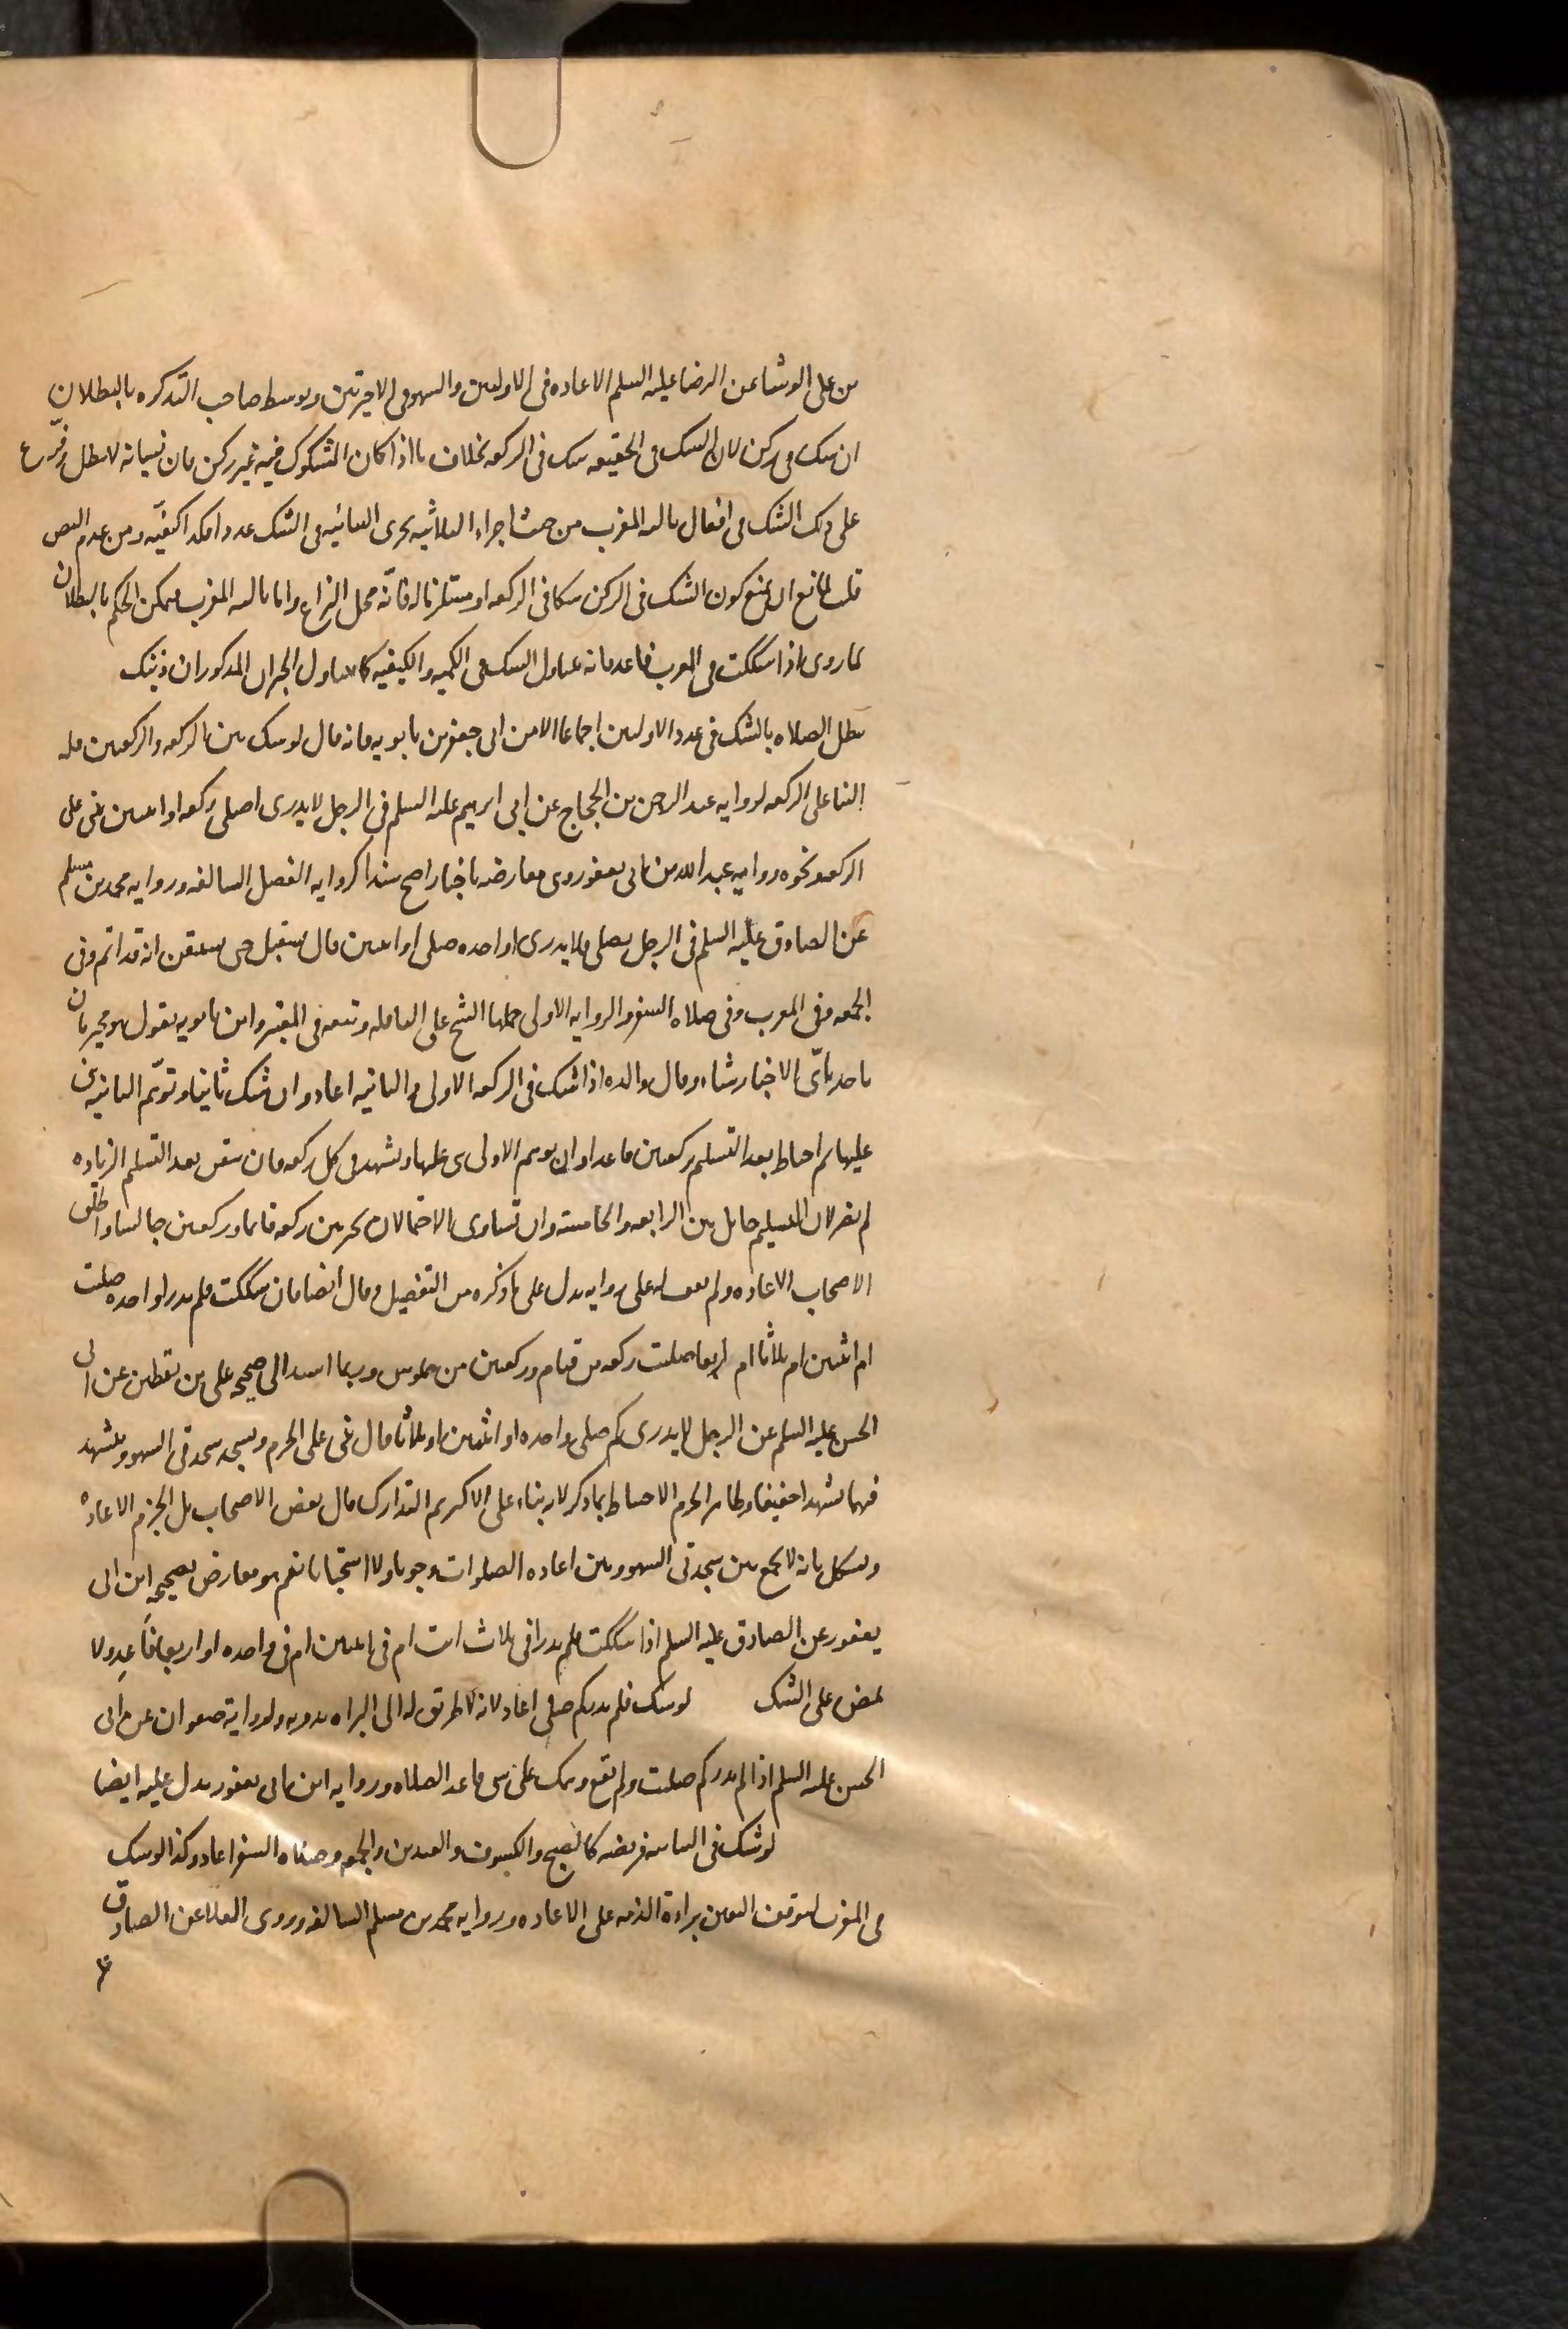 بن على الوشا عن الرضا عليه السلم الاعاده فى الاوليين والسهو فى الاخيرتين وتوسط صاحب التذكره بالبطلان
ان شك فى ركن لان الشك فى الحقيقه شك فى الركعه بخلاف ما اذا كان المشكوك فيه غير ركن فان نسيانه لا يبطل وفرّع
على ذلك الشك فى افعال ثالثه المغرب من حيث اجراء الثلاثيه مجرى الثنائيه فى الشك عددا فكذا كيفيّه ومن عدم النص
قلت لمانع ان يمنع كون الشك فى الركن شكا فى الركعه او مستلزما له فانّه محل النزاع واما ثالثه المغرب فيمكن الحكم بالبطلان
لما روى اذا شككت فى المغرب فاعد فانه يتناول الشك فى الكميه والكيفيه كما تناول الخبران المذكوران ذينك
تبطل الصلاه بالشك فى عدد الاوليين اجماعا الا من ابى جعفر بن بابويه فانه قال لو شك بين الركعه والركعتين فله
البنا على الركعه لروايه عبد الرحمن بن الحجاج عن ابى ابرهيم عليه السلم فى الرجل لا يدرى اصلى ركعه او اثنتين يبنى على
الركعه ونحوه روايه عبد الله بن ابى يعفور وهى معارضه باخبار اصح سندا كروايه الفضل السالفه وروايه محمد بن مسلم
عن الصادق عليه السلم فى الرجل يصلى ولا يدرى اواحده صلى او اثنتين قال يستقبل حتى يستيقن انه قد اتم وفى
الجمعه وفى المغرب وفى صلاه السفر والروايه الاولى حملها الشيخ على النافله وتبعه فى المعتبر وابن بابويه يقول هو مخير بان
ياخذ باىّ الاخبار شاء وقال والده اذا شك فى الركعه الاولى والثانيه اعاد وان شك ثانيا وتوهّم الثانيه بنى
عليها ثم احتاط بعد التسليم بركعتين قاعدا وان توهم الاولى بنى عليها وتشهد فى كل ركعه فان تيقن بعد التسليم الزياده
لم يضر لان التسليم حايل بين الرابعه والخامسه وان تساوى الاحتمالان تخير بين ركعه قائما وركعتين جالسا واطلق
الاصحاب الاعاده ولم نقف له على روايه تدل على ما ذكره من التفصيل وقال ايضا فان شككت فلم تدر اواحده صليت
ام اثنتين ام ثلاثا ام اربعا صليت ركعه من قيام وركعتين من جلوس وربما استند الى صحيحه على بن يقطين عن ابى
الحسن عليه السلم عن الرجل لا يدرى كم صلى واحده او اثنتين او ثلاثا قال يبنى على الجزم ويسجد سجدتى السهو ويتشهد
فيهما تشهدا خفيفا وظاهر الجزم الاحتياط بما ذكر لانه بناء على الاكثر ثم التدارك قال بعض الاصحاب بل الجزم الاعاده
ويشكل بانه لا يجمع بين سجدتى السهو وبين اعاده الصلوات وجوبا ولا استحبابا نعم هو معارض بصحيحه ابن ابى
يعفور عن الصادق عليه السلم اذا شككت فلم تدر افى ثلاث انت ام فى اثنتين ام فى واحده او اربع فاعد ولا
تمض على الشك لو شك فلم يدر كم صلى اعاد لانه لا طريق له الى البراه بدونه ولروايه صفوان عن ابى
الحسن عليه السلم اذا لم تدر كم صليت ولم يقع وهمك على شى فاعد الصلاه وروايه ابن ابى يعفور تدل عليه ايضا
لو شك فى الثنائيه فريضه كالصبح والكسوف والعيدين والجمعه وصلاه السفر اعاد وكذا لو شك
فى المغرب لتوقف اليقين ببراءة الذمه على الاعاده وروايه محمد بن مسلم السالفه وروى العلا عن الصادق